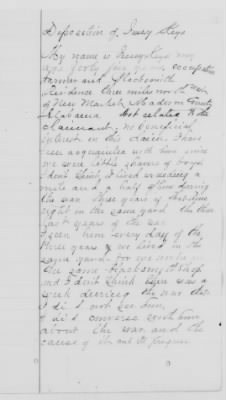 Deposition of Ivery Keys
My name is Ivery Keys my
age forty five years, occupation
farmer and Blacksmith
Residence three miles north West
of New Market Madison County
Alabama Not related to the
claimant, no beneficial
interest in the claim I have
been acquainted with him since
we were little shavers of boys
I don't think I lived exceeding a
mile and a half of him during
the war three years of the time
right in the same yard the three
last years of the war
I seen him every day of the
three years we lived in the
same yard for we worked in
the same blacksmith shop
and I don't think there was a
week during the war that
I did not see him,
I did converse with him
about the war, and the
causes of it and its progress